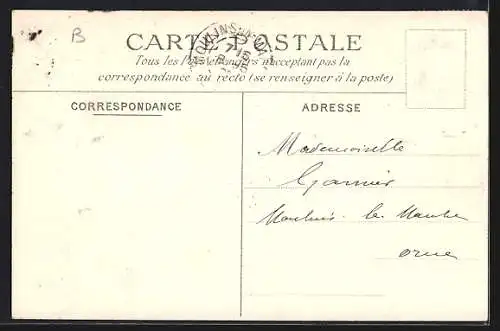 B
CARTE POSTALE
Tous les Pays étrangers n'acceptant pas la
correspondance au recto (se renseigner à la poste)
CORRESPONDANCE
ADRESSE
Mademoiselle
Garnier
Moulins la Marche
Orne